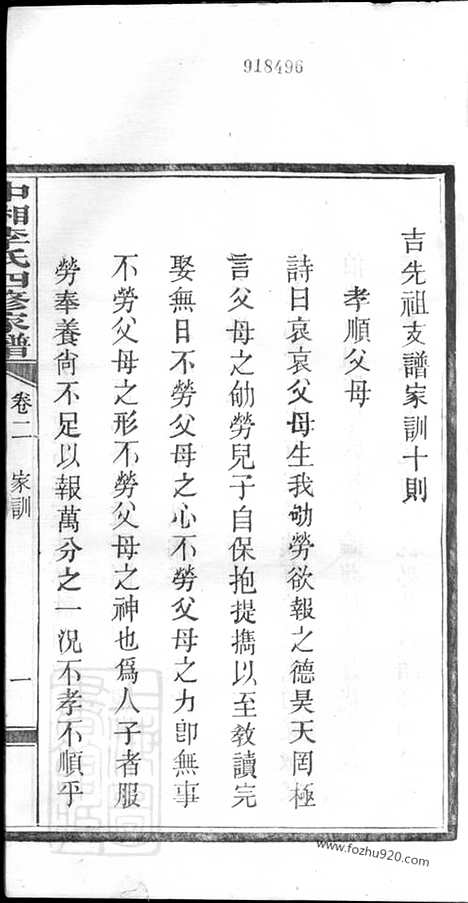 918496
吉先祖支譜家訓十則
孝順父母
詩曰哀哀父母生我劬勞欲報之德昊天罔極
言父母之劬勞兒子自保抱提擕以至教讀完
娶無日不勞父母之心不勞父母之力卽無事
不勞父母之形不勞父母之神也爲人子者服
勞奉養尙不足以報萬分之一況不孝不順乎
中湘李氏四修家譜
卷二
家訓
一
www.fozhu920.com